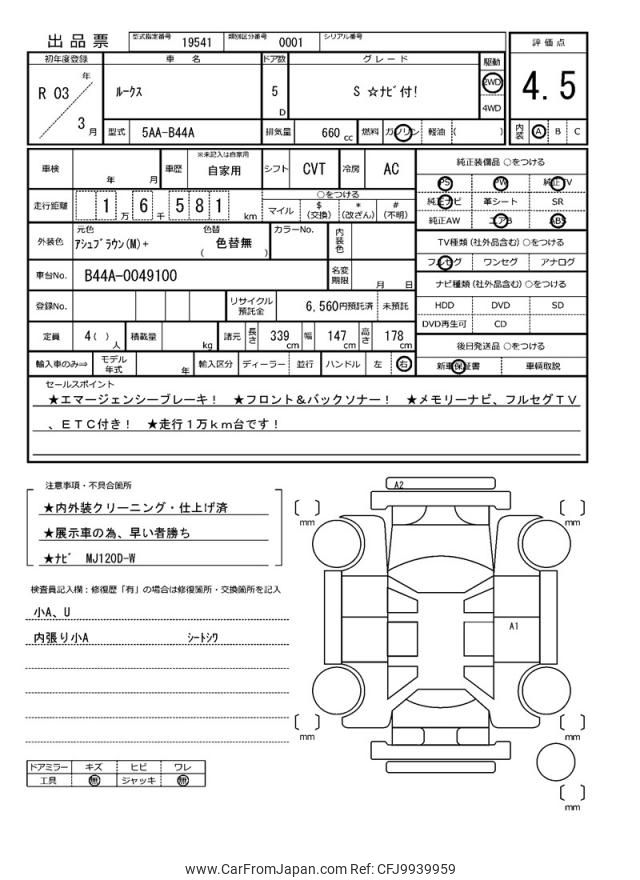 出品票 型式指定番号 19541 類別区分番号 0001 シリアル番号
評価点
4.5
内装 A B C
初年度登録 車名 ドア数 グレード 駆動
R 03 年 3 月
ルークス 5 D S ☆ナビ付! 2WD 4WD
型式 5AA-B44A 排気量 660 cc 燃料 ガソリン 軽油 ( )
車検 年 月 車歴 ※未記入は自家用 自家用 シフト CVT 冷房 AC
走行距離 1 万 6 千 5 8 1 km
○をつける
マイル $(交換) *(改ざん) #(不明)
外装色 元色 アシュブラウン(M)+ 色替 ( 色替無 ) カラーNo. 内装色
車台No. B44A-0049100 名変期限 月 日
登録No. リサイクル預託金 6,560円預託済 未預託
定員 4( ) 人 積載量 kg 諸元 長さ 339 cm 幅 147 cm 高さ 178 cm
輸入車のみ⇒ モデル年式 年 輸入区分 ディーラー 並行 ハンドル 左 右
純正装備品 ○をつける
PS PW 純正TV
純正ナビ 革シート SR
純正AW エアB ABS
TV種類(社外品含む) ○をつける
フルセグ ワンセグ アナログ
ナビ種類(社外品含む) ○をつける
HDD DVD SD
DVD再生可 CD
後日発送品 ○をつける
新車保証書 車輌取説
セールスポイント
★エマージェンシーブレーキ! ★フロント&バックソナー! ★メモリーナビ、フルセグTV
、ETC付き! ★走行1万km台です!
注意事項・不具合箇所
★内外装クリーニング・仕上げ済
★展示車の為、早い者勝ち
★ナビ MJ120D-W
検査員記入欄:修復歴「有」の場合は修復箇所・交換箇所を記入
小A、U
内張り小A シートシワ
ドアミラー キズ ヒビ ワレ
工具 無 ジャッキ 無
A2
A1
mm
mm
mm
mm
mm
www.CarFromJapan.com Ref: CFJ9939959